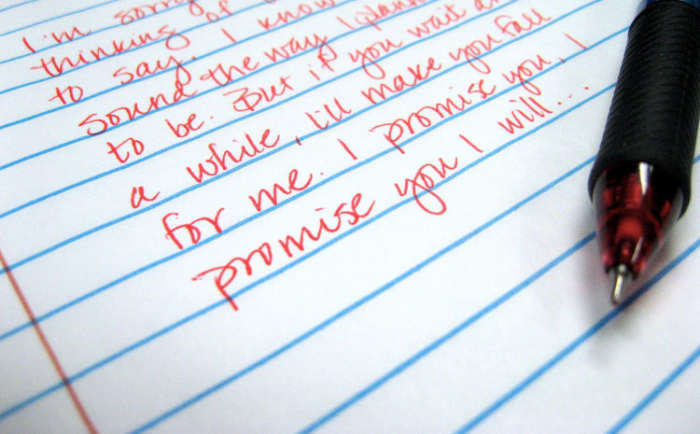 I'm sorry
thinking of
to say. I know
sound the way I plann
to be. But if you wait a
a while, I'll make you fall
for me. I promise you, I
promise you I will...